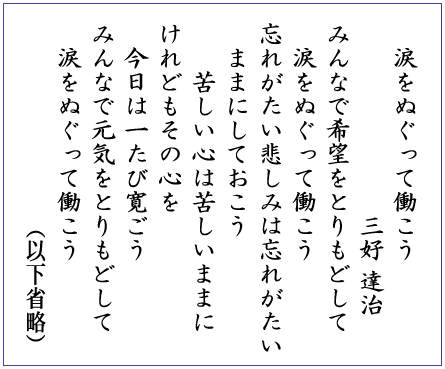 涙をぬぐって働こう
三好 達治
みんなで希望をとりもどして
涙をぬぐって働こう
忘れがたい悲しみは忘れがたい
ままにしておこう
苦しい心は苦しいままに
けれどもその心を
今日は一たび寛ごう
みんなで元気をとりもどして
涙をぬぐって働こう
（以下省略）